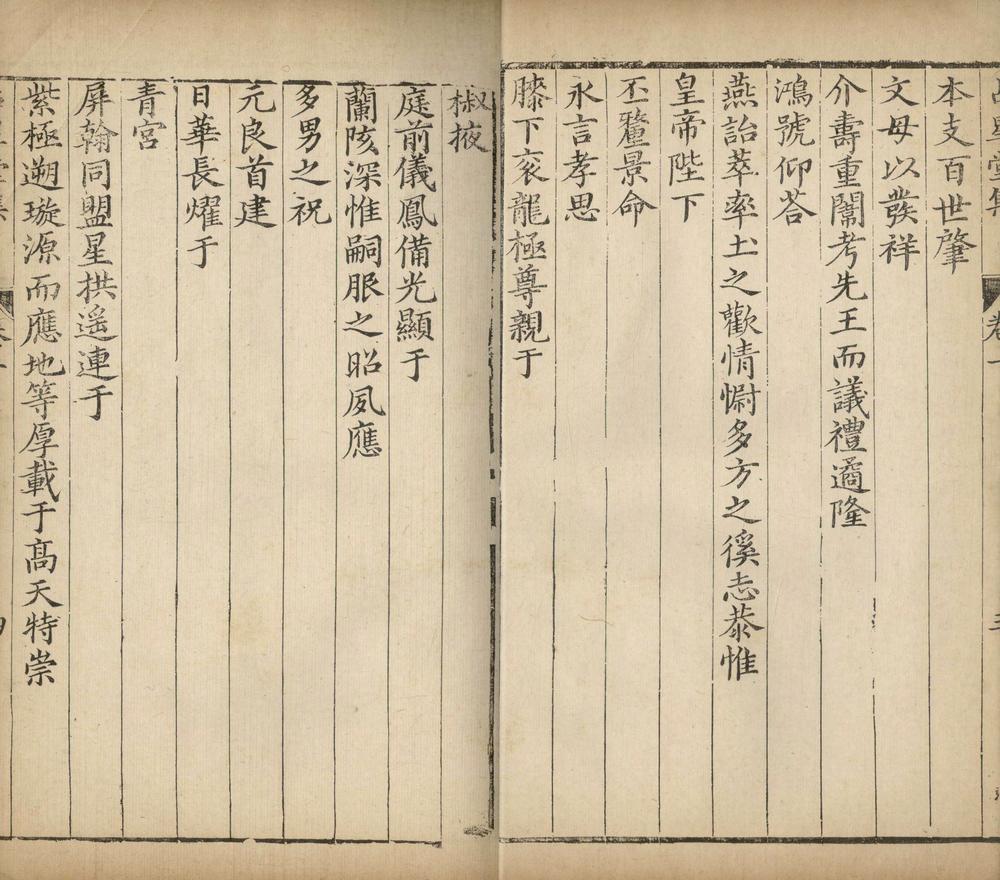 本支百世肇
文母以發祥
介夀重闈考先王而議禮遹隆
鴻號仰荅
燕詒萃率土之歡情慰多方之徯志恭惟
皇帝陛下
丕釐景命
永言孝思
膝下衮龍極尊親于
椒掖
庭前儀鳳備光顯于
蘭陔深惟嗣服之昭夙應
多男之祝
元良首建
日華長燿于
青宮
屏翰同盟星拱遥連于
紫極遡璇源而應地等厚載于高天特崇